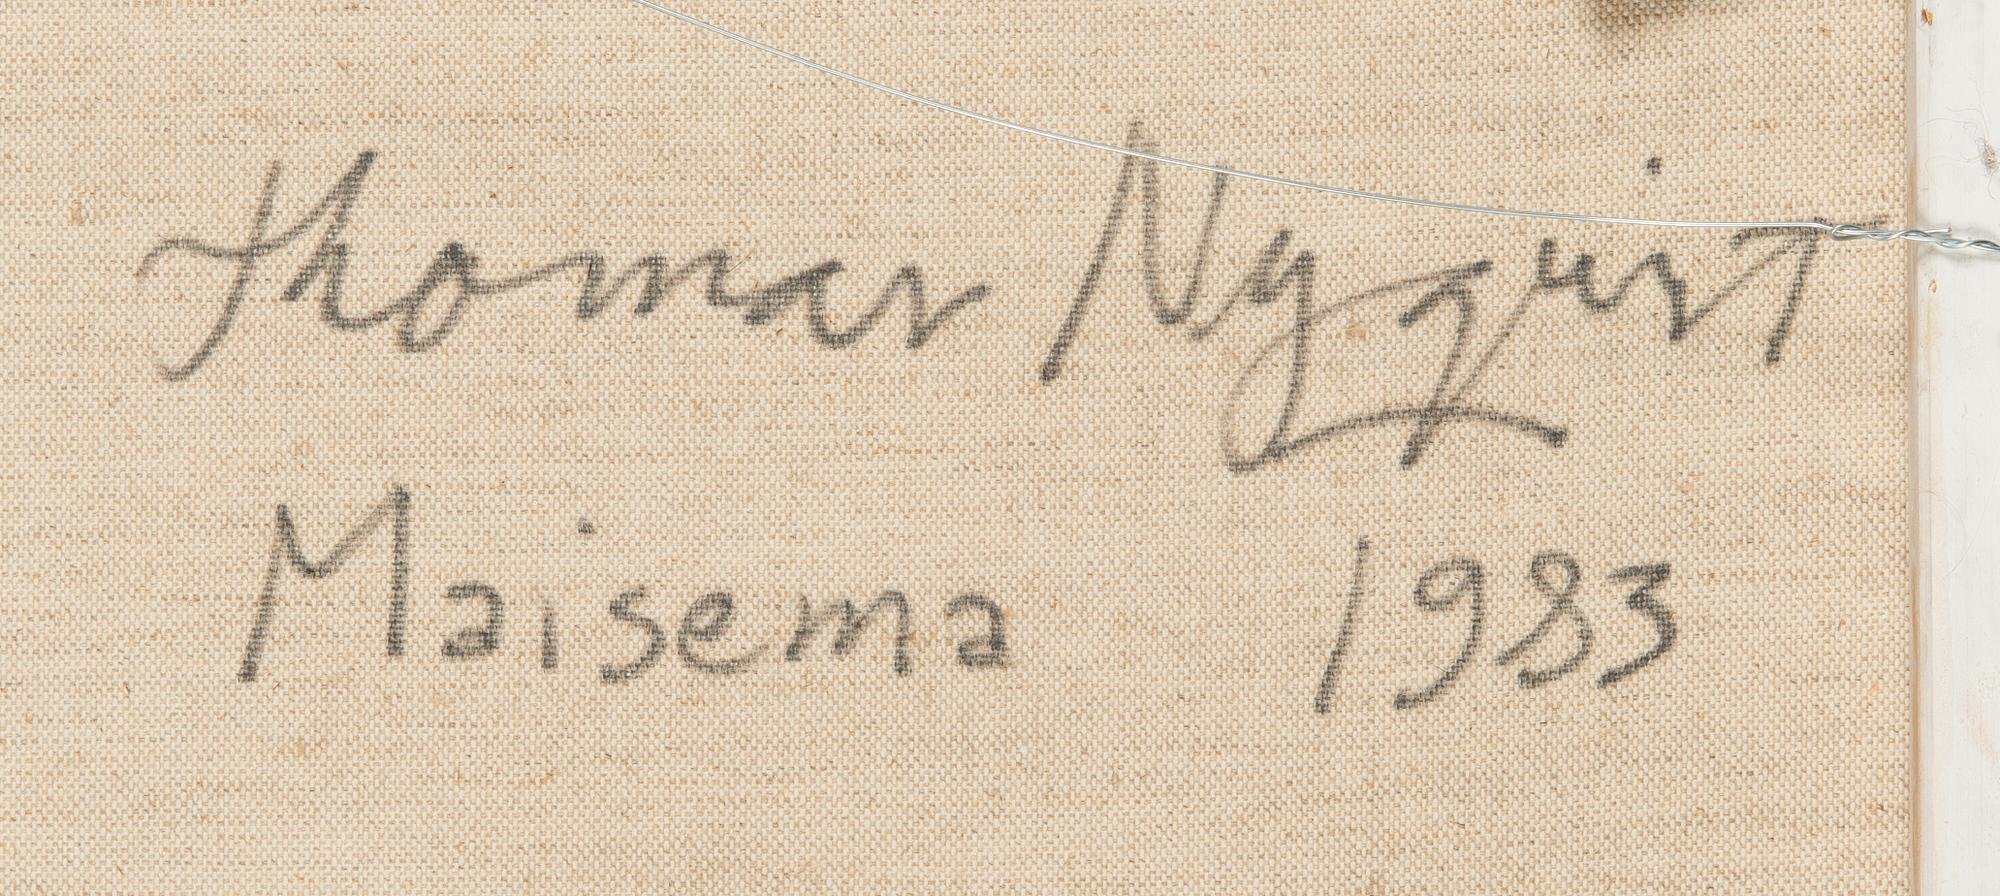 Thomas Nyqvist
Maisema 1983